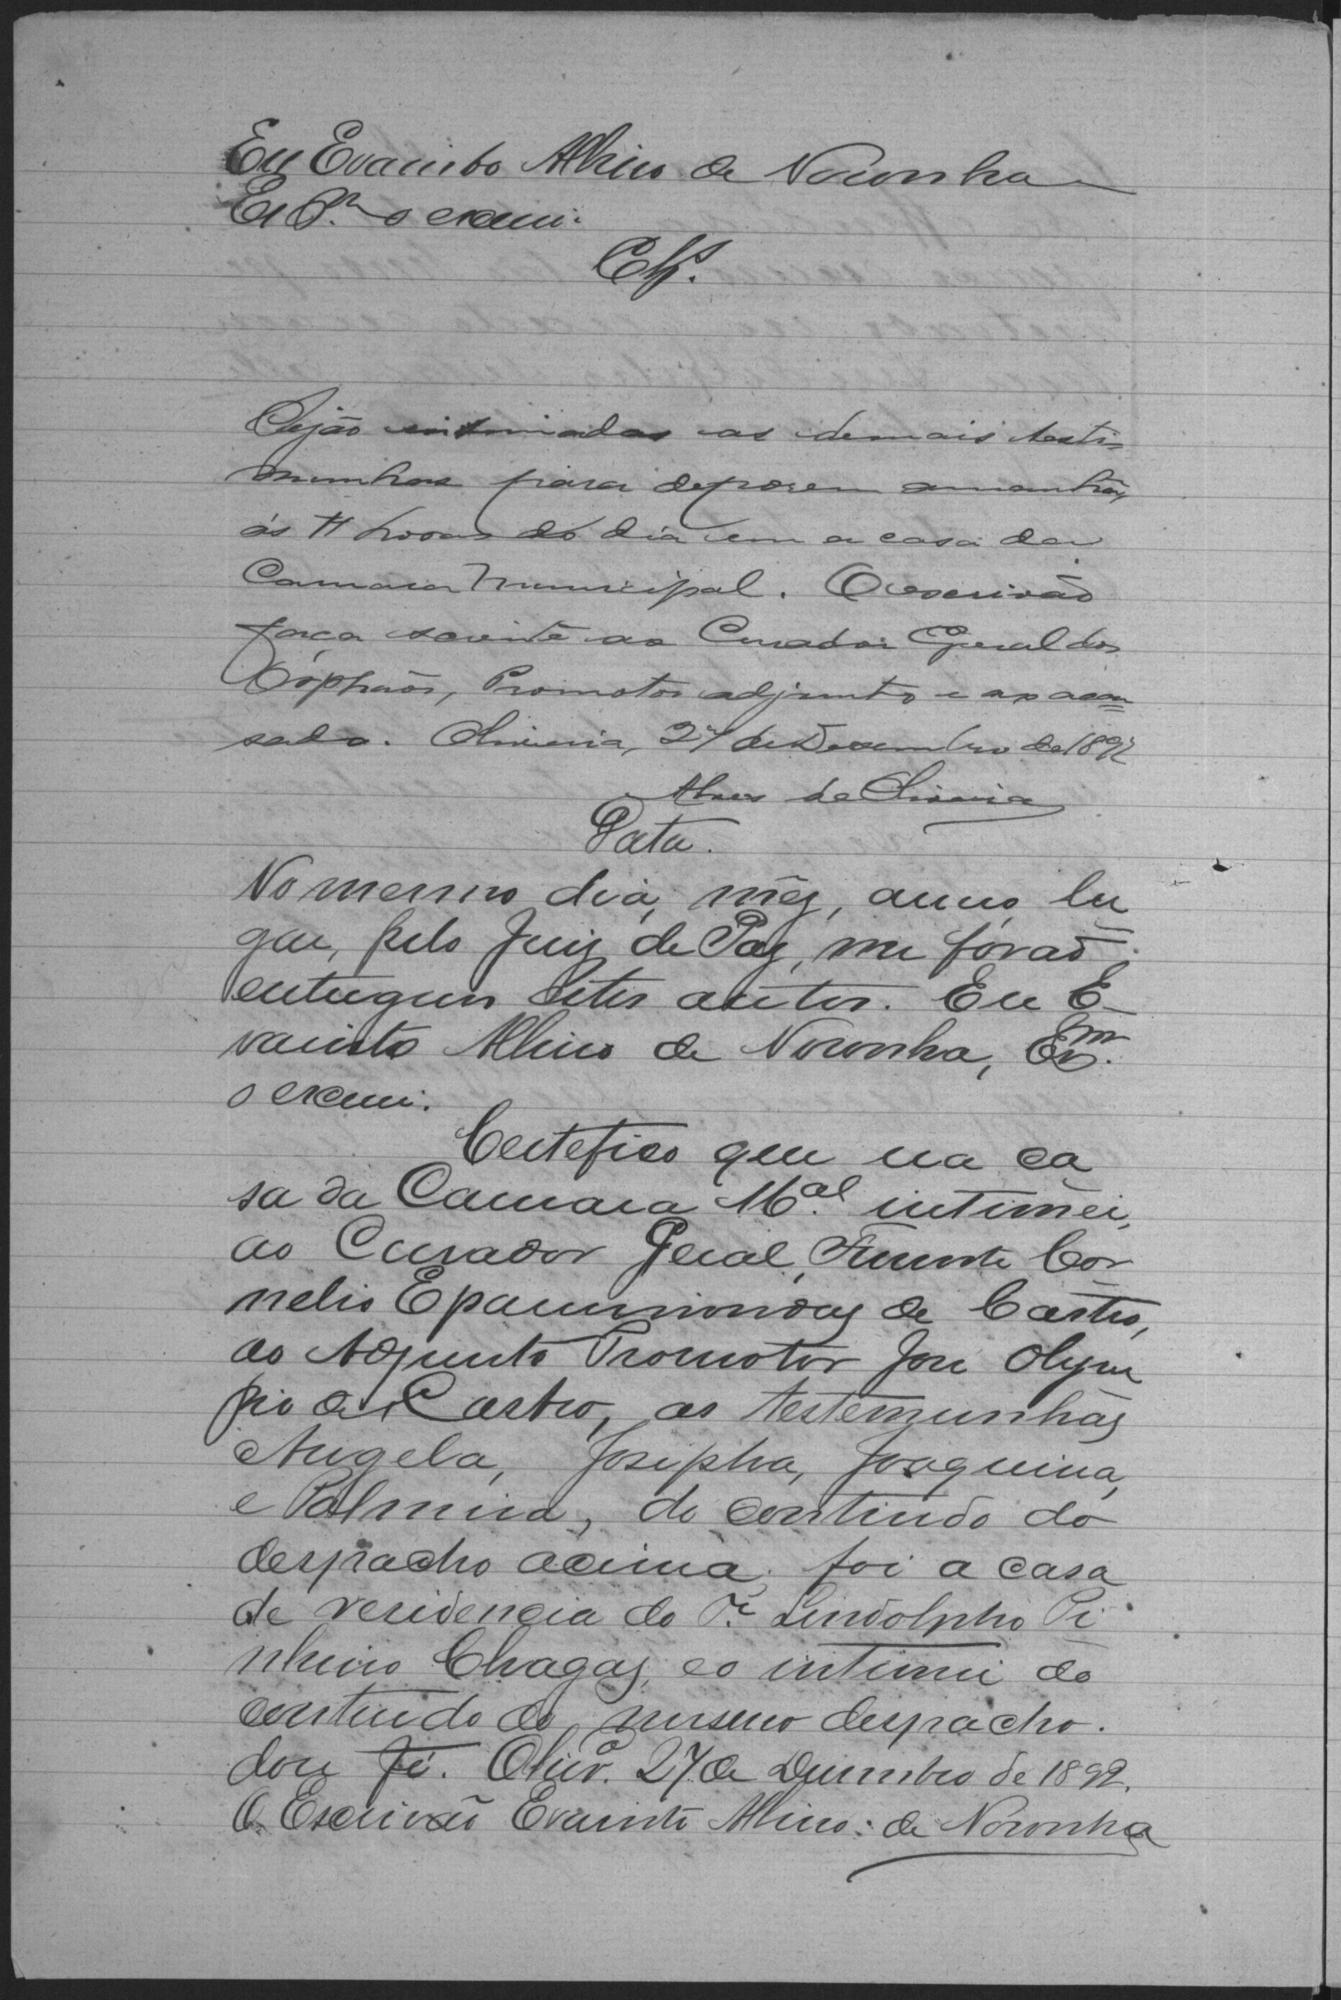 Eu Evaristo Albino de Noronha
Es.m o escrevi.
Clsº.
Sejão intimadas as demais testi
munhas para deporem amanhã,
ás 11 horas do dia em a casa da
Camara Municipal. O escrivão
faça sciente ao Curador Geral dos
Orphãos, Promotor adjunto e ao accu
sado. Oliveira, 27 de Dezembro de 1892
Alves de Oliveira
Data.
No mesmo dia, mêz, anno, lu
gar, pelo Juiz de Paz, me forão
entregues estes autos. Eu E
varisto Albino de Noronha, Es.m
o escrevi.
Certefico que na ca
sa da Camara M.al intimei,
ao Curador Geral, Tenente Cor
nelio Epaminondas de Castro,
ao Adjunto Promotor José Olym
pio de Castro, as testemunhas
Angela, Josepha, Joaquina,
e Palmira, do contiudo do
despacho acima, foi a casa
de residencia do Dr. Lindolpho Pi
nheiro Chagas, e o intimei do
contiudo do mesmo despacho.
dou fé. Oliv.a 27 de Dezembro de 1892.
O Escrivão Evaristo Albino de Noronha